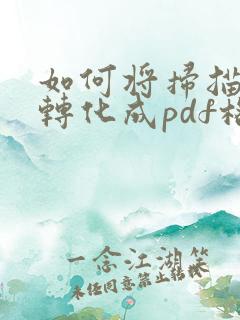 如何將掃描
轉化成pdf格
一念江湖笑
未经同意禁止转载